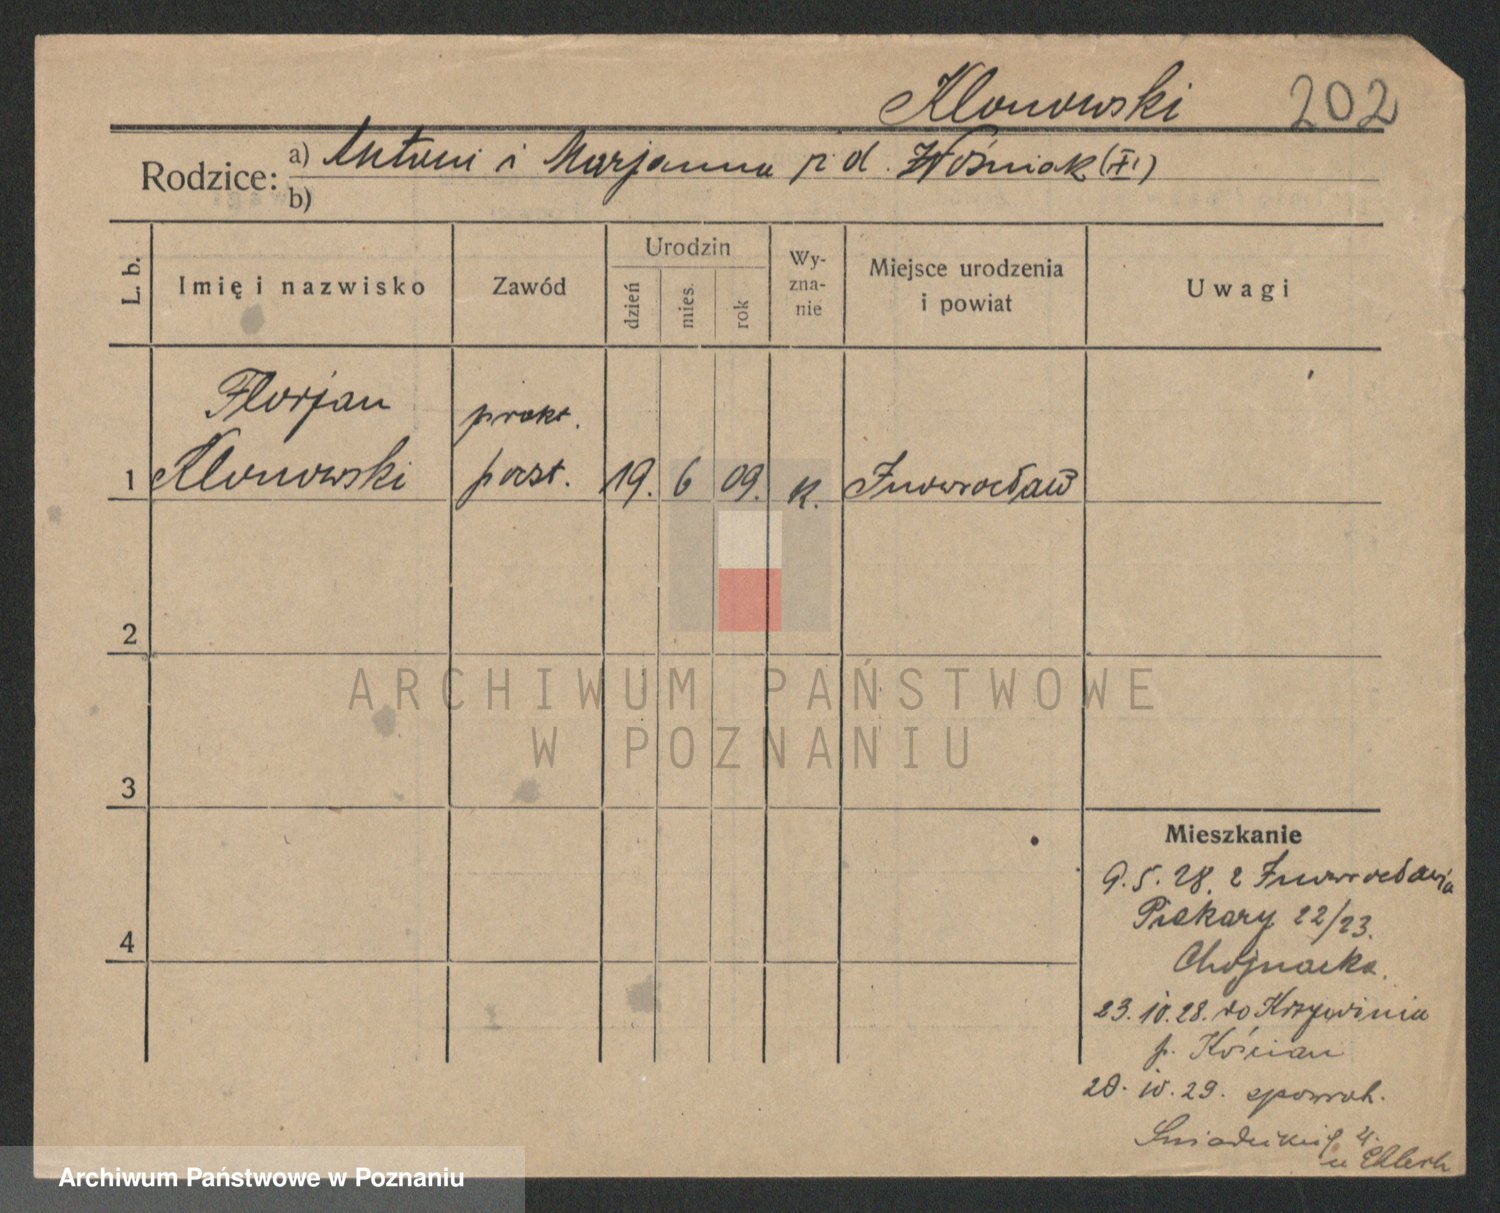 Klonowski 202
Rodzice: a) Antoni i Marjanna z d. Woźniak (XI)
b)
L. b. Imię i nazwisko Zawód Urodzin dzień mies. rok Wy-zna-nie Miejsce urodzenia i powiat Uwagi
Florjan prakt.
1 Klonowski poczt. 19. 6 09. k. Inowrocław
2
ARCHIWUM PAŃSTWOWE
W POZNANIU
3
Mieszkanie
9. 5. 28. z Inowrocławia
Piekary 22/23.
4
Chojnacka.
23. 10. 28. do Krzywinia
p. Kościan
28. 10. 29. zpowrot.
Śniadeckich 4.
Archiwum Państwowe w Poznaniu